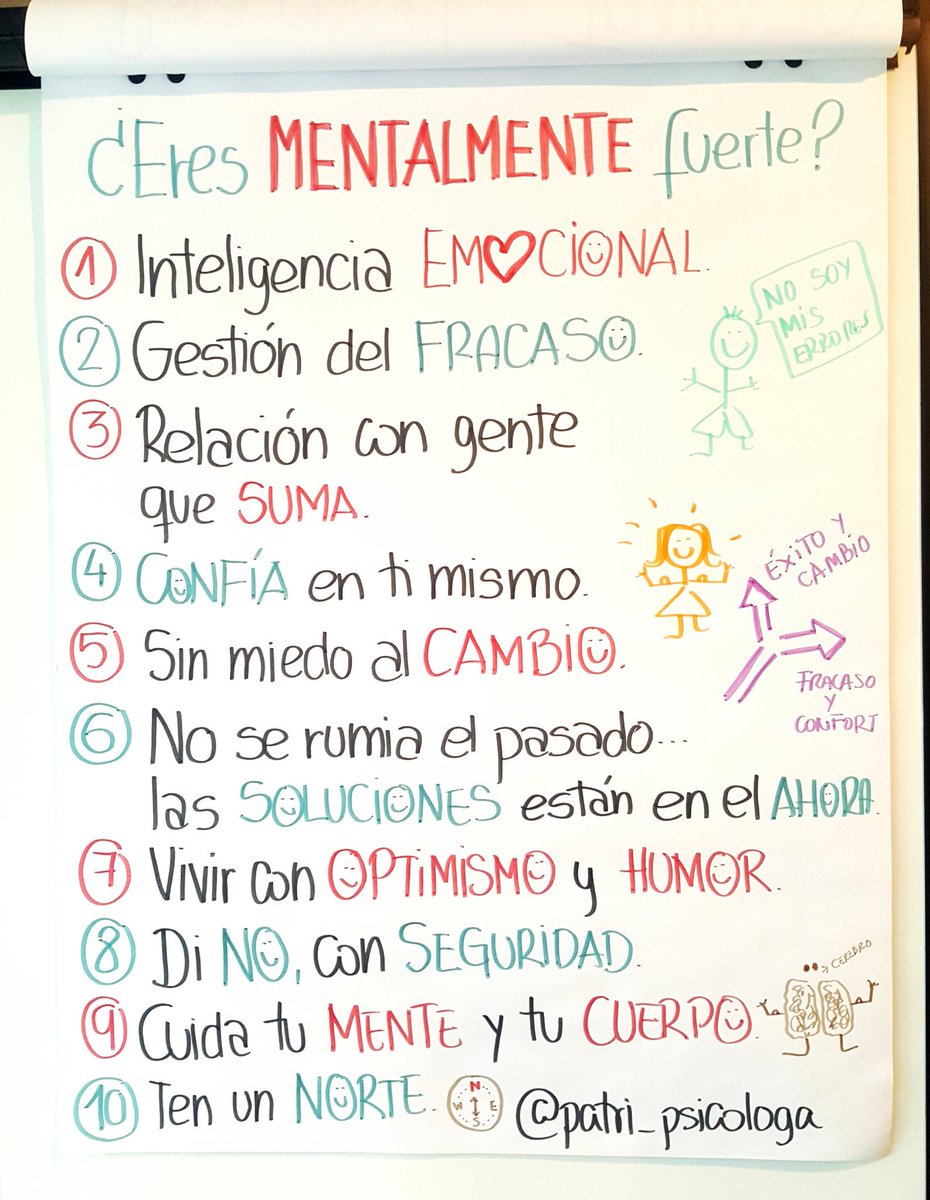 ¿Eres MENTALMENTE fuerte?
1 Inteligencia EMOCIONAL.
2 Gestión del FRACASO.
NO SOY
MIS
ERRORES
3 Relación con gente
que SUMA.
4 CONFÍA en ti mismo.
ÉXITO Y
CAMBIO
5 Sin miedo al CAMBIO.
FRACASO
Y
CONFORT
6 No se rumia el pasado...
las SOLUCIONES están en el AHORA.
7 Vivir con OPTIMISMO y HUMOR.
8 Di NO, con SEGURIDAD.
CEREBRO
9 Cuida tu MENTE y tu CUERPO.
10 Ten un NORTE.
N
W E
S
@patri_psicologa